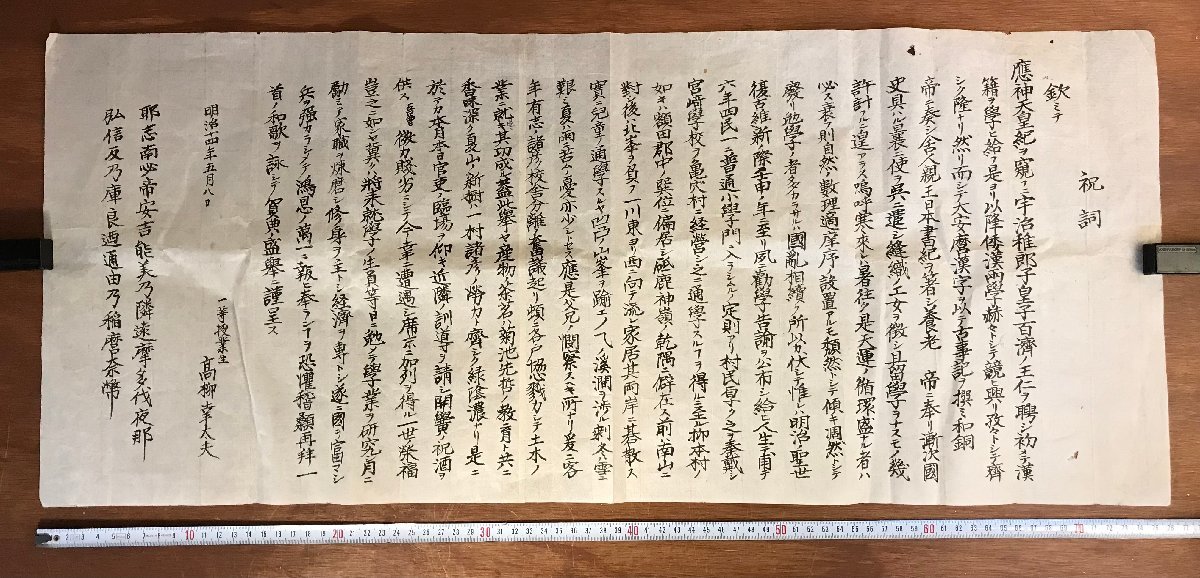 祝詞
欽ミテ
應神天皇紀ヲ窺フニ宇治稚郎子皇子百濟ノ王仁ヲ聘シ初メテ漢
籍ヲ學ヒ給フ是ヨリ以降倭漢両學赫々トシテ競ヒ興リ孜々トシテ齊
シク隆ナリ然リ而シテ太安麿漢字ヲ以テ古事記ヲ撰ミ和銅
帝ニ奏シ舎人親王日本書紀ヲ著シ養老 帝ニ奉リ漸次國
史具ハル曩ニ使ヲ呉ニ遣シ縫織ノ工女ヲ徴シ且留學ヲナスモノ幾
許計フルニ遑アラス嗚呼寒来レハ暑往ク是天運ノ循環盛ナル者ハ
必ス衰フ則自然ノ数理適庠序ノ設置アルモ頽然トシテ傾キ凋然トシテ
廢リ勉學ノ者多カラサルハ國亂相續ク所以ナリ伏テ惟ハ明治ノ聖世
復古維新ノ際壬申ノ年ニ至リ夙ニ勸學ノ告諭ヲ公布シ給ヒ人生テ甫テ
六年四民一ニ普通小學ノ門ニ入ラシムルノ定則アリ村民厚ク之ヲ奉戴シ
宮﨑學校ヲ亀穴村ニ経營シ之ニ通學スルヿヲ得ルニ至ル抑本村ノ
如キハ額田郡中ノ巽位ニ偏居シ鹿神嶺ノ乾隅ニ僻在ス前ニ南山ニ
對シ後北峯ヲ負フ一川東ヨリ西ニ向テ流レ家居其両岸ニ碁散ス
實ニ兒童ノ通學スルヤ凹凸ノ山峯ヲ踰エノ溪澗ヲ渉ル剰ヘ冬ノ雪ニ
艱ミ夏ハ雨ニ苦ム憂亦少シトセス應是父兄ノ憫察スヘキ所ナリ爰ニ客
年有志ノ諸彦校舎分離ノ奮議起リ頻ニ各戸協戮力シテ土木ノ
業ニ就キ其功成ル蓋此擧ヤ産物ノ茶名ハ菊池先哲ノ教育ト共ニ
香味深ク夏山ノ新樹ハ一村諸彦ノ勞力ト齊シク緑陰濃ナリ是ニ
於テカ本日官吏ノ臨場ヲ仰キ近隣ノ訓導ヲ請シ開黌ノ祝酒ヲ
供ス微力賤劣ニシテ今幸ニ遭遇シ席末ニ加列ヲ得ル一世ノ栄福
豈之ニ如ンヤ冀クハ將来就學ノ生員等日ニ勉シテ學業ヲ研究シ月ニ
勵ミテ家職ヲ煉磨シ修身ヲ主トシ経濟ヲ専トシ遂ニ國ヲ富マシ
兵ヲ強カラシメテ鴻恩ノ萬一ニ報ヒ奉ランヿヲ恐懼稽顙再拝一
首ノ和歌ヲ詠シテ賀莚ノ盛擧ニ謹呈ス
明治十四年五月八日
一等授業生
高柳幸太夫
耶志南必帝安吉能美乃隣遠摩多代夜那
弘信及乃庫良迺通由乃稲磨奈幣